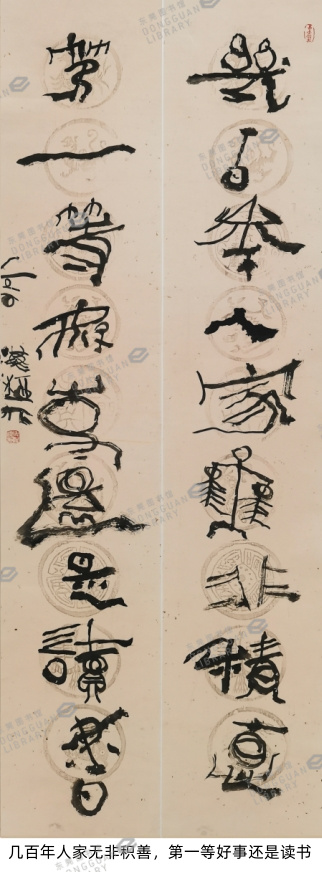 幾百年人家無非積
第一等好事還是讀書
东莞图书馆
DONGGUAN
LIBRARY
几百年人家无非积善，第一等好事还是读书